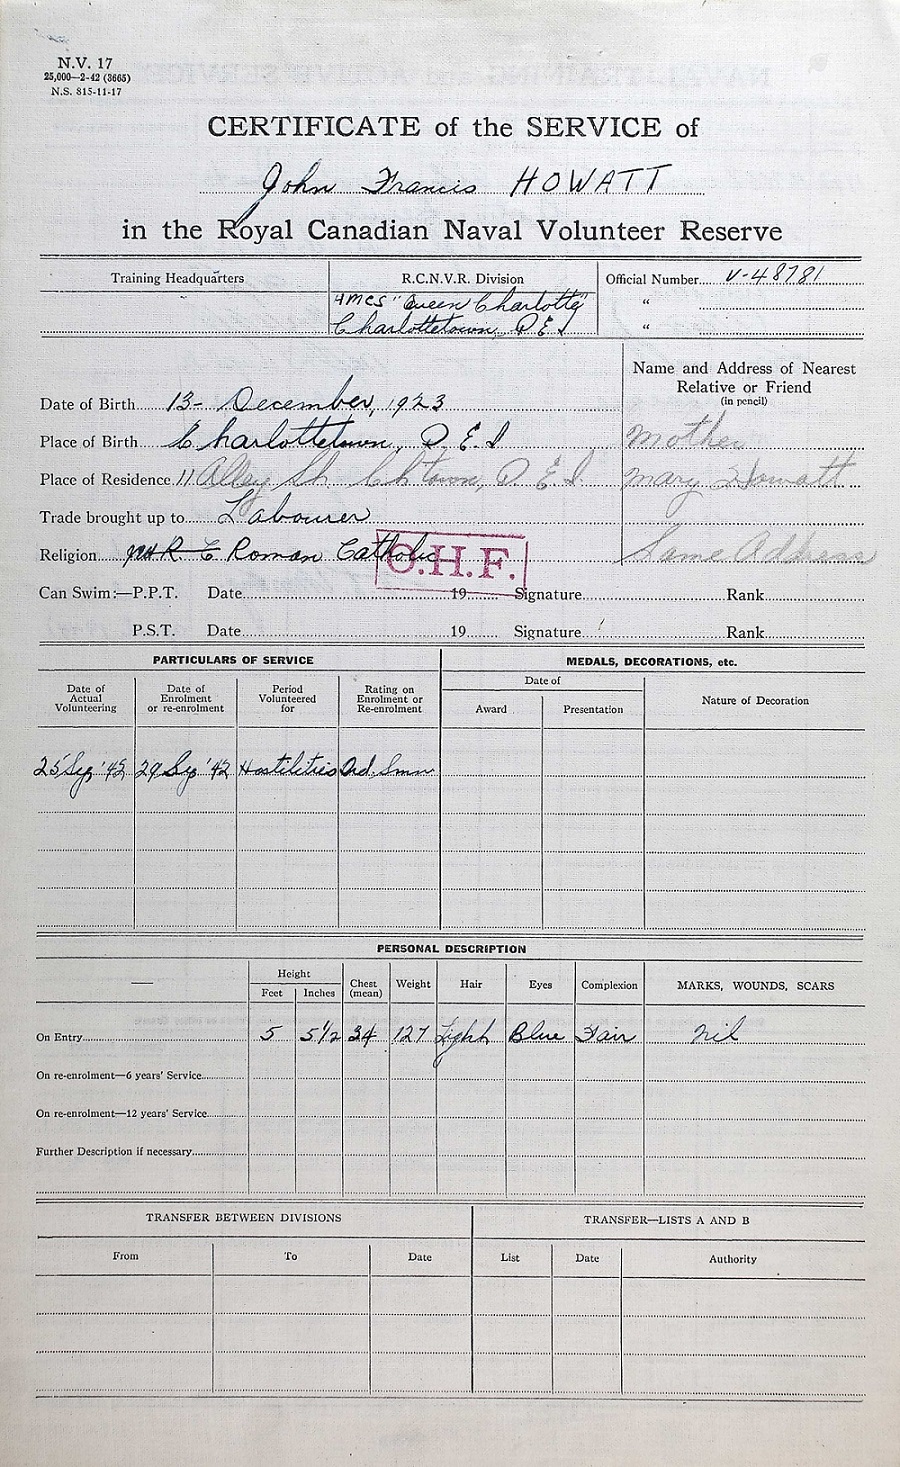 N.V. 17
25,000—2-42 (3665)
N.S. 815-11-17
CERTIFICATE of the SERVICE of
John Francis HOWATT
in the Royal Canadian Naval Volunteer Reserve
Training Headquarters
R.C.N.V.R. Division
Official Number V-48781
HMCS "Queen Charlotte" "
Charlottetown, P E I "
Name and Address of Nearest
Relative or Friend
(in pencil)
Date of Birth 13- December, 1923
Place of Birth Charlottetown, P. E. I Mother
Place of Residence 11 Alley St Chtown, P E I. Mary Howatt
Trade brought up to Labourer
Religion R C Roman Catholic Same Address
O.H.F.
Can Swim:—P.P.T. Date 19 Signature Rank
P.S.T. Date 19 Signature Rank
PARTICULARS OF SERVICE
MEDALS, DECORATIONS, etc.
Date of Actual Volunteering
Date of Enrolment or re-enrolment
Period Volunteered for
Rating on Enrolment or Re-enrolment
Date of
Award
Presentation
Nature of Decoration
25 Sep '42 29 Sep '42 Hostilities Ord. Smn
PERSONAL DESCRIPTION
—
Height
Feet Inches
Chest (mean)
Weight
Hair
Eyes
Complexion
MARKS, WOUNDS, SCARS
On Entry 5 5½ 34 127 Light Blue Fair nil
On re-enrolment—6 years' Service
On re-enrolment—12 years' Service
Further Description if necessary
TRANSFER BETWEEN DIVISIONS
TRANSFER—LISTS A AND B
From To Date List Date Authority